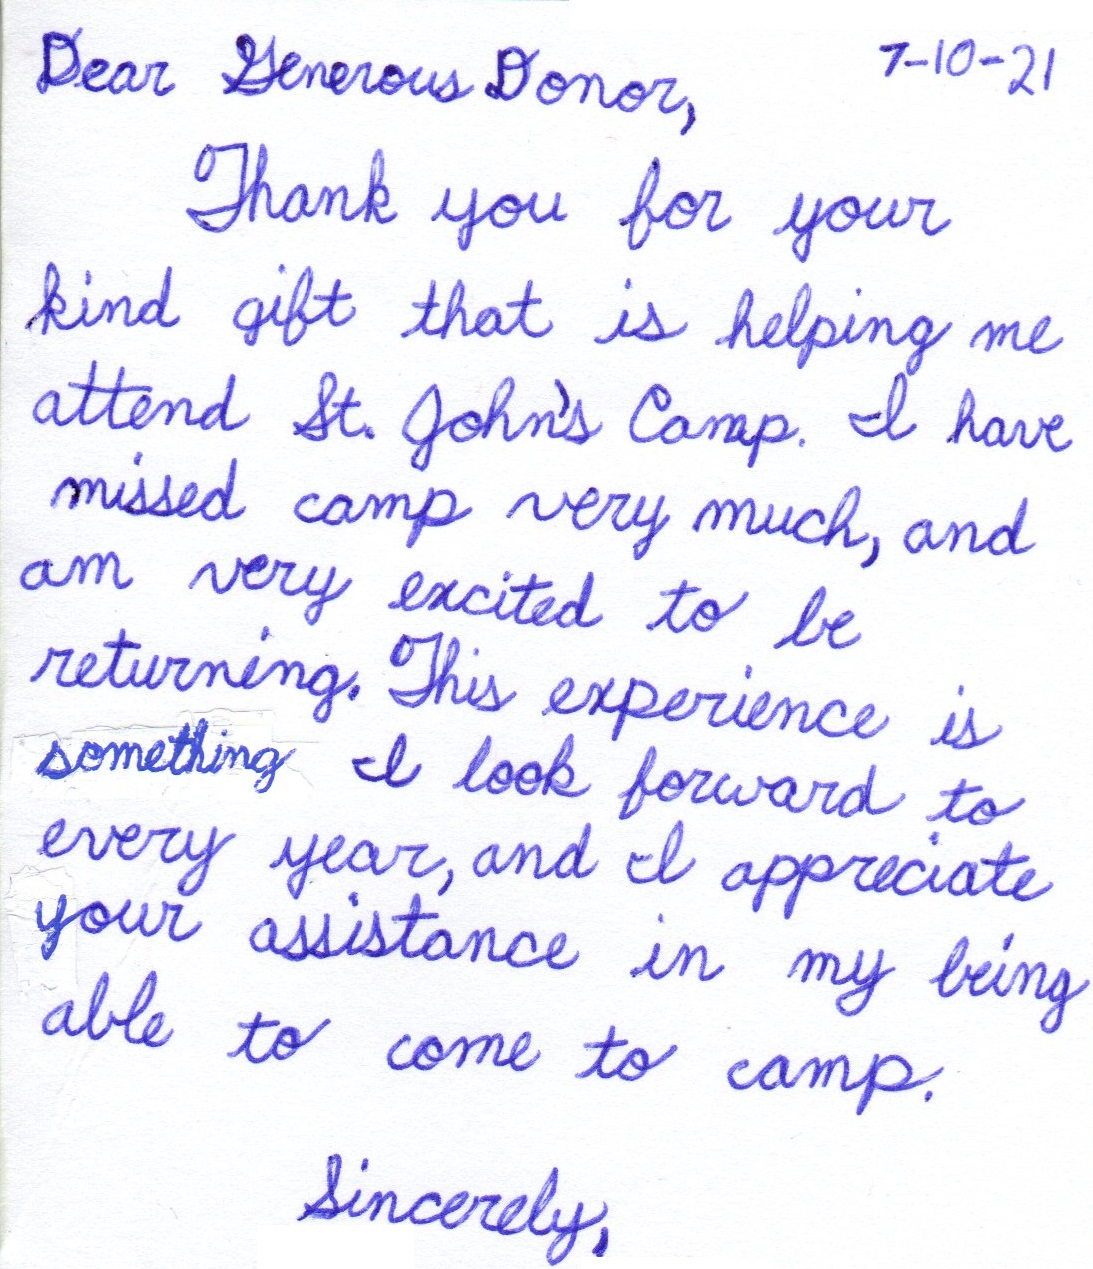 Dear Generous Donor, 7-10-21
Thank you for your
kind gift that is helping me
attend St. John's Camp. I have
missed camp very much, and
am very excited to be
returning. This experience is
something I look forward to
every year, and I appreciate
your assistance in my being
able to come to camp.
Sincerely,